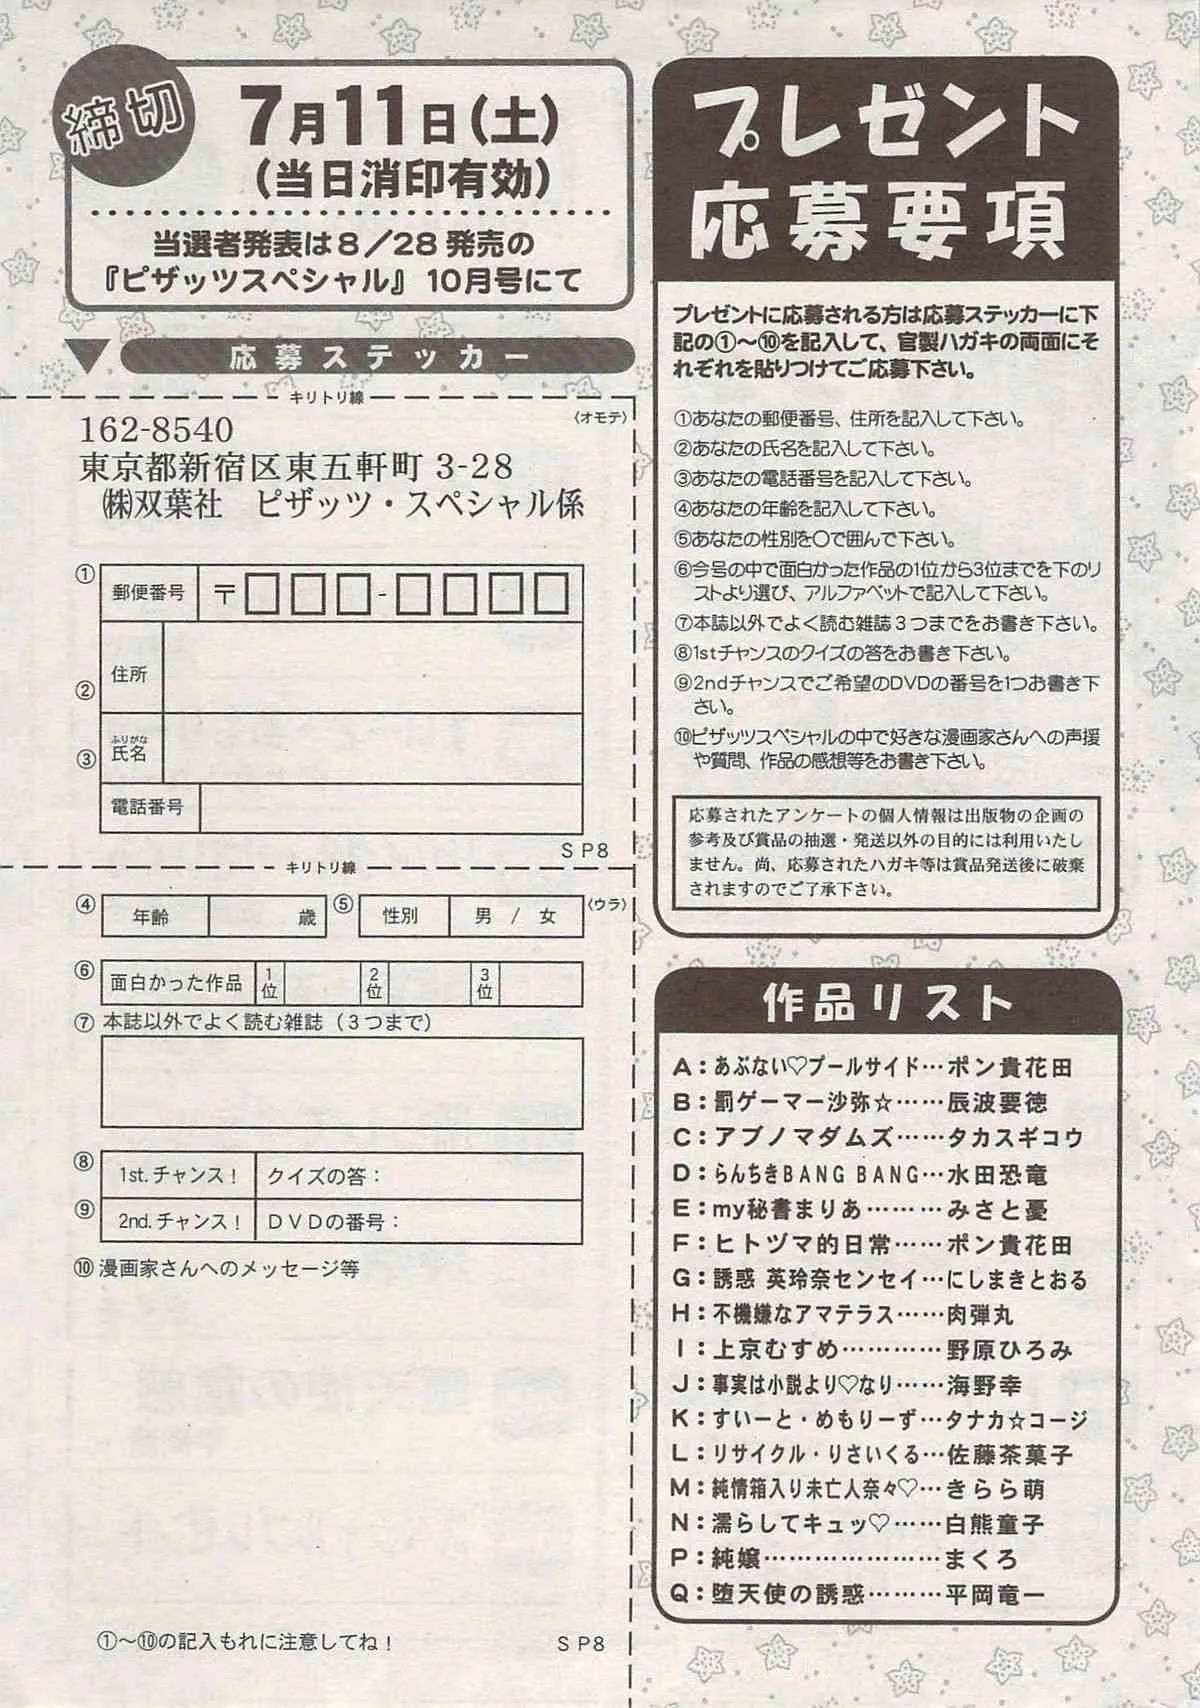 締切
7月11日(土)
(当日消印有効)
当選者発表は8/28発売の
『ピザッツスペシャル』10月号にて
応募ステッカー
キリトリ線
〈オモテ〉
162-8540
東京都新宿区東五軒町 3-28
㈱双葉社　ピザッツ・スペシャル係
①
郵便番号 〒□□□-□□□□
②
住所
③
ふりがな
氏名
電話番号
SP8
キリトリ線
〈ウラ〉
④ 年齢 歳 ⑤ 性別 男 / 女
⑥ 面白かった作品 1位 2位 3位
⑦ 本誌以外でよく読む雑誌(3つまで)
⑧ 1st.チャンス! クイズの答:
⑨ 2nd.チャンス! DVDの番号:
⑩ 漫画家さんへのメッセージ等
①〜⑩の記入もれに注意してね!
SP8
プレゼント
応募要項
プレゼントに応募される方は応募ステッカーに下
記の①〜⑩を記入して、官製ハガキの両面にそ
れぞれを貼りつけてご応募下さい。
①あなたの郵便番号、住所を記入して下さい。
②あなたの氏名を記入して下さい。
③あなたの電話番号を記入して下さい。
④あなたの年齢を記入して下さい。
⑤あなたの性別を○で囲んで下さい。
⑥今号の中で面白かった作品の1位から3位までを下のリ
ストより選び、アルファベットで記入して下さい。
⑦本誌以外でよく読む雑誌3つまでをお書き下さい。
⑧1stチャンスのクイズの答をお書き下さい。
⑨2ndチャンスでご希望のDVDの番号を1つお書き下
さい。
⑩ピザッツスペシャルの中で好きな漫画家さんへの声援
や質問、作品の感想等をお書き下さい。
応募されたアンケートの個人情報は出版物の企画の
参考及び賞品の抽選・発送以外の目的には利用いたし
ません。尚、応募されたハガキ等は賞品発送後に破棄
されますのでご了承下さい。
作品リスト
A：あぶない♡プールサイド…ポン貴花田
B：罰ゲーマー沙弥☆……辰波要徳
C：アブノマダムズ……タカスギコウ
D：らんちきBANG BANG…水田恐竜
E：my秘書まりあ………みさと憂
F：ヒトヅマ的日常……ポン貴花田
G：誘惑 英玲奈センセイ…にしまきとおる
H：不機嫌なアマテラス……肉弾丸
I：上京むすめ…………野原ひろみ
J：事実は小説より♡なり…海野幸
K：すいーと・めもりーず…タナカ☆コージ
L：リサイクル・りさいくる…佐藤茶菓子
M：純情箱入り未亡人奈々♡…きらら萌
N：濡らしてキュッ♡……白熊童子
P：純嬢…………………まくろ
Q：堕天使の誘惑………平岡竜一